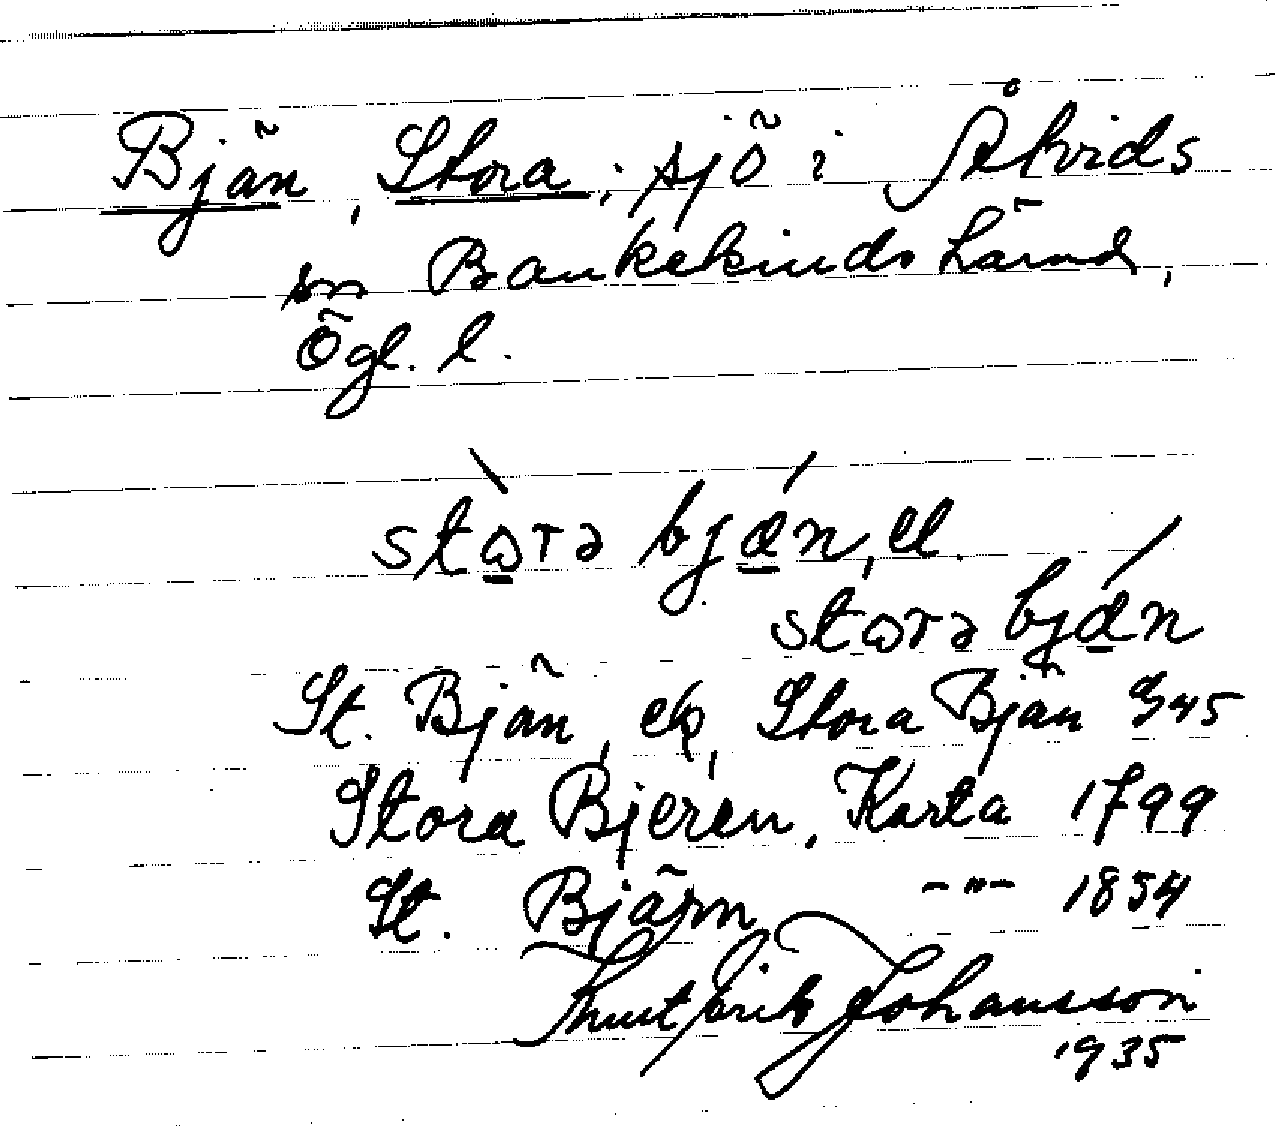 Bjän, Stora; sjö i Åtvids
sn Bankekinds härad,
Ögl. l.
stɷ̀rə bjǽn, el.
stɷrə bjǽn
St. Bjän, ek, Stora Bjän G45
Stora Bjeren, Karta 1799
St. Bjärn -"- 1854
Knut Erik Johansson
1935